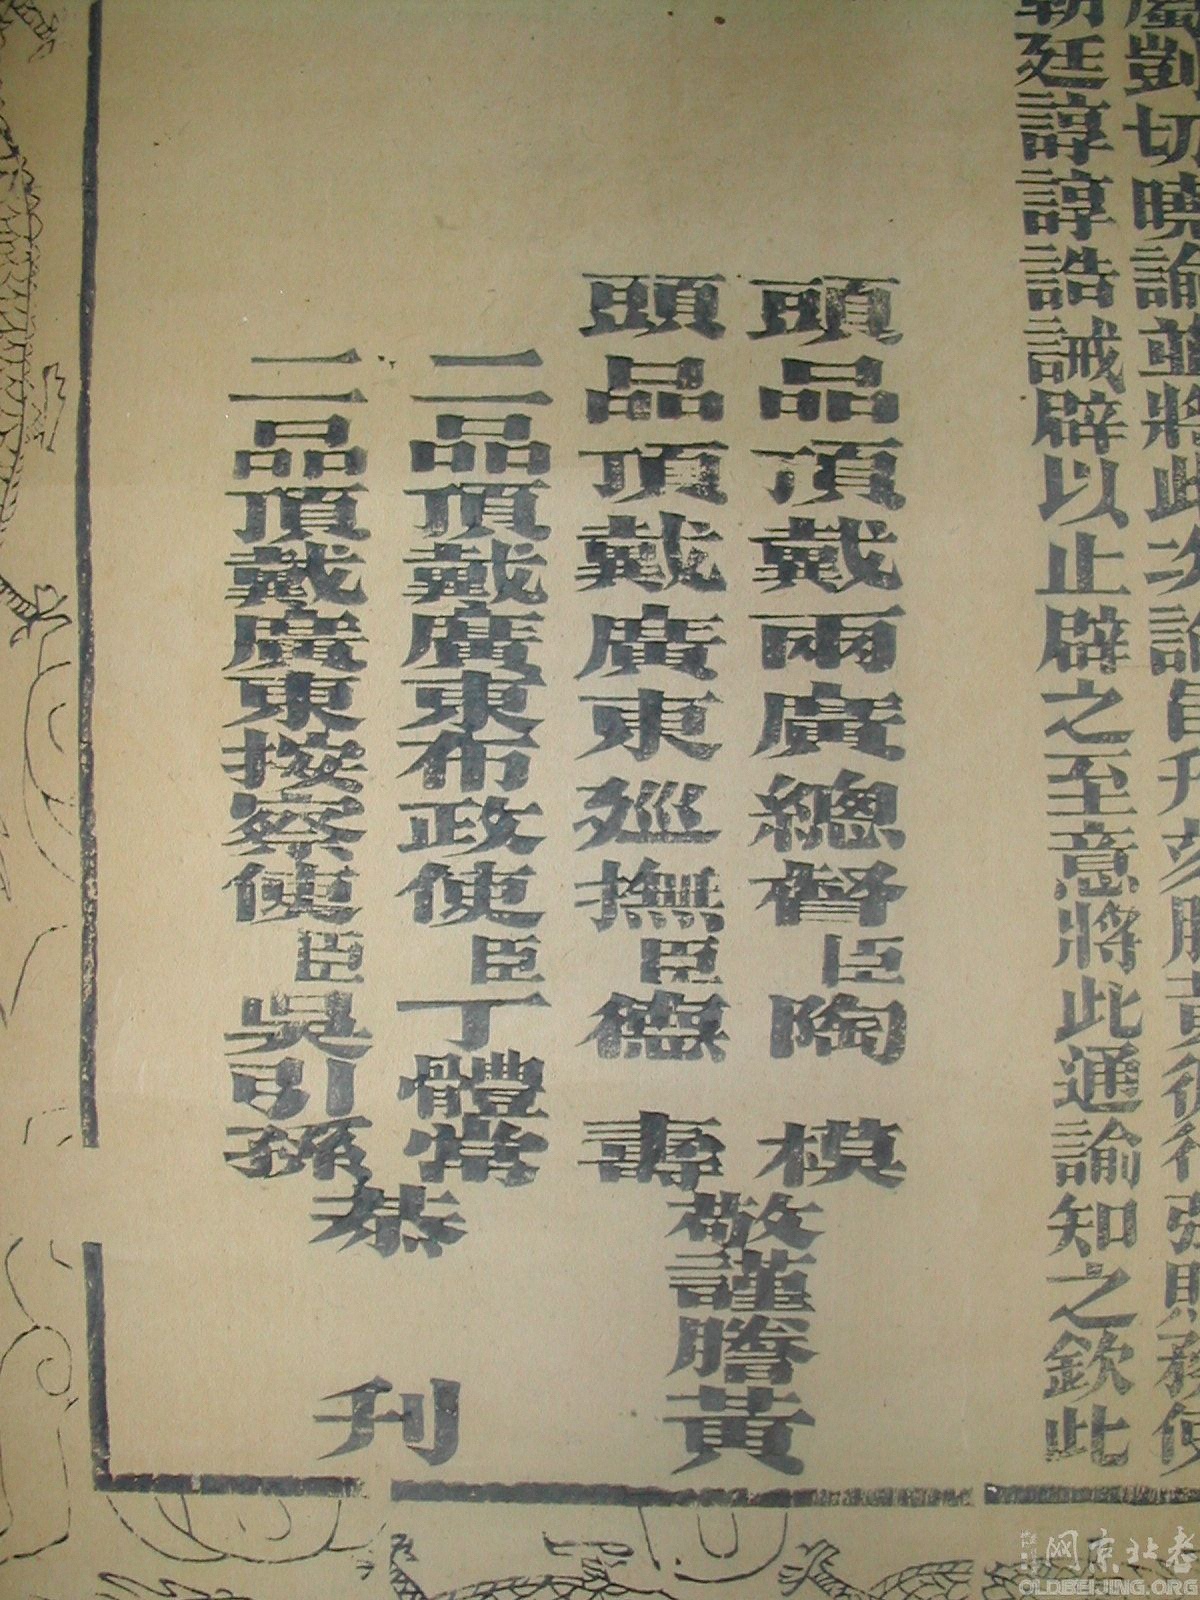 屬剴切曉諭並將此次諭旨刊刻謄黃
朝廷諄諄誥誡辟以止辟之至意將此通諭知之欽此
頭品頂戴兩廣總督臣陶模
頭品頂戴廣東巡撫臣德壽
敬謹謄黃
二品頂戴廣東布政使臣丁體常
二品頂戴廣東按察使臣吳引孫
恭刊
老北京网
OLDBEIJING.ORG